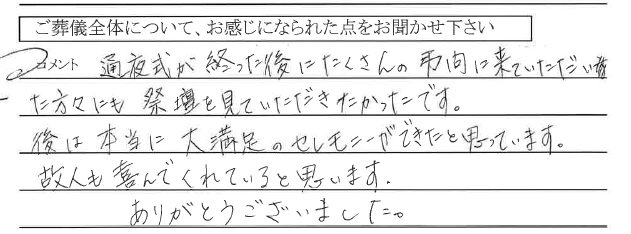 ご葬儀全体について、お感じになられた点をお聞かせ下さい
コメント 通夜式が終った後にたくさんの弔問に来ていただい
た方々にも祭壇を見ていただきたかったです。
後は本当に大満足のセレモニーができたと思っています。
故人も喜んでくれていると思います.
ありがとうございました。